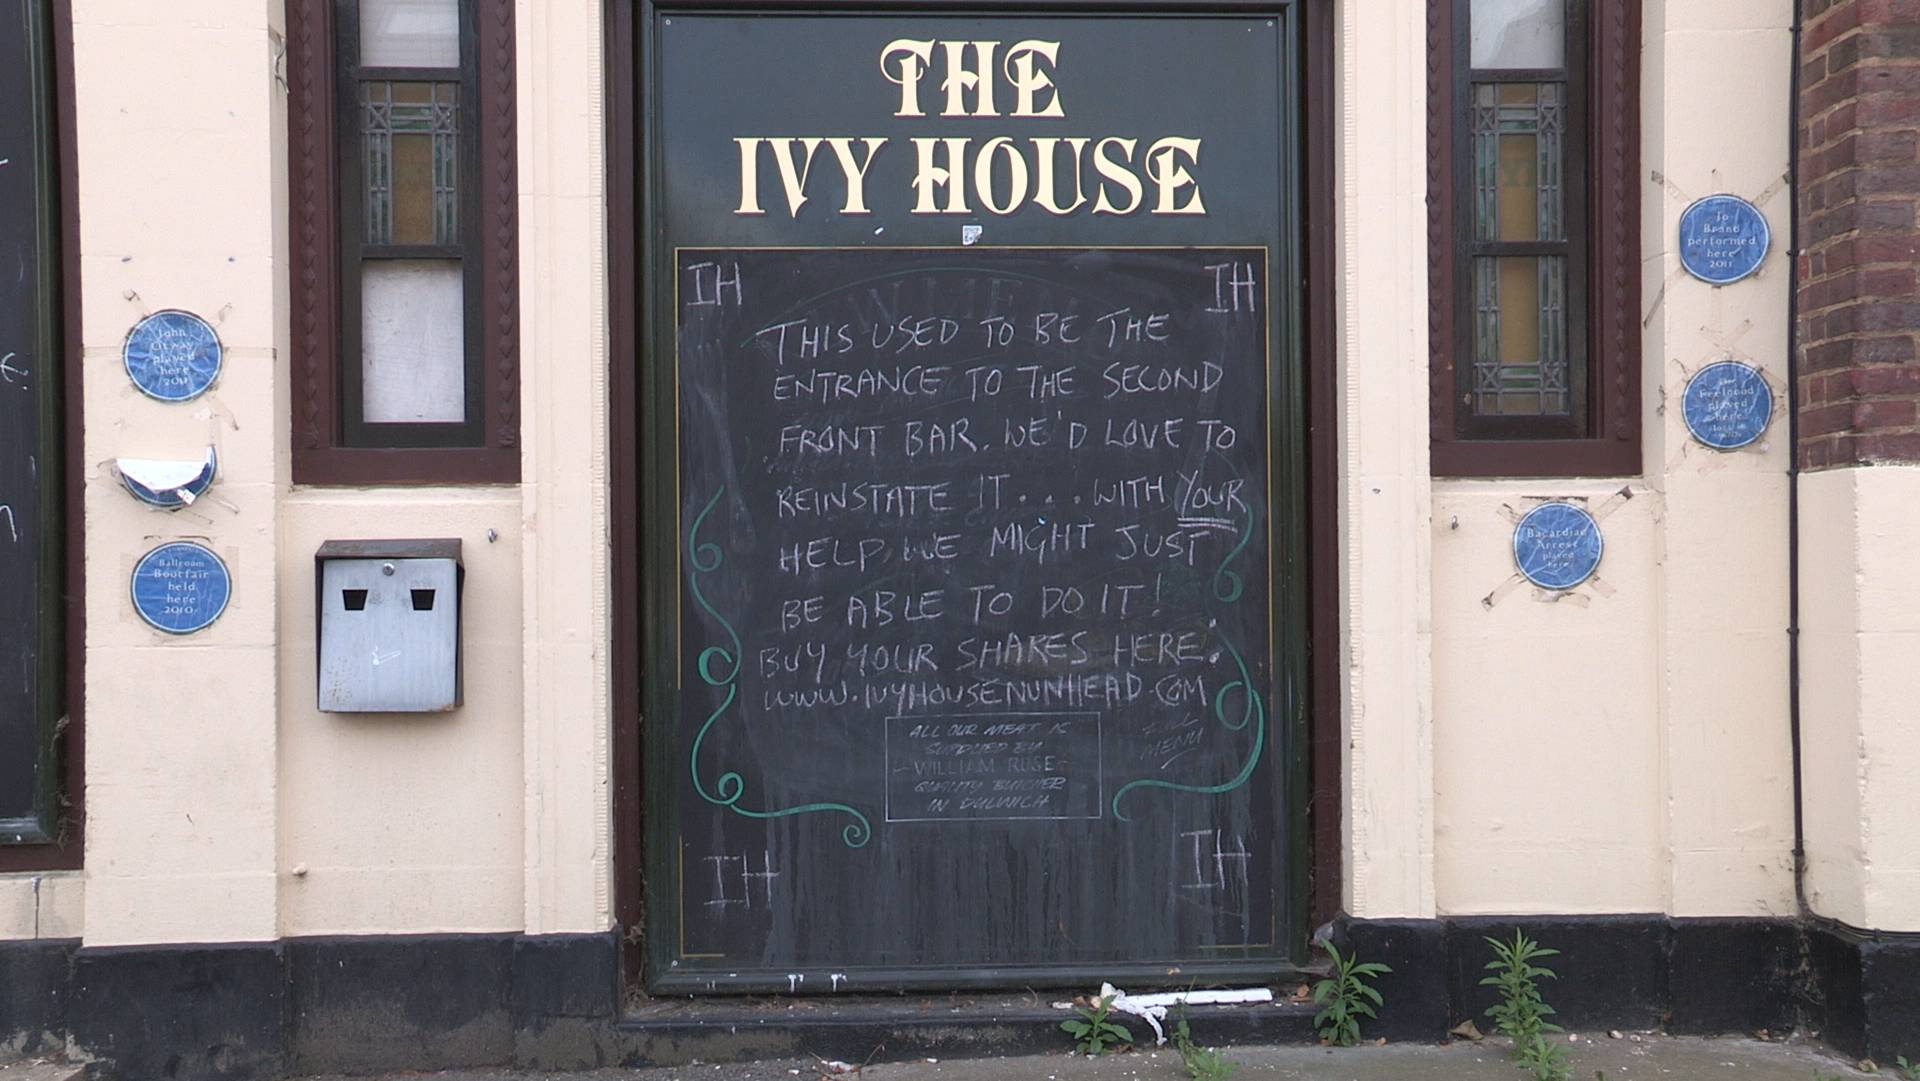 THE
IVY HOUSE
IH
IH
THIS USED TO BE THE
ENTRANCE TO THE SECOND
FRONT BAR. WE'D LOVE TO
REINSTATE IT... WITH YOUR
HELP, WE MIGHT JUST
BE ABLE TO DO IT!
BUY YOUR SHARES HERE:
WWW.IVYHOUSENUNHEAD.COM
ALL OUR MEAT IS
SUPPLIED BY
WILLIAM ROSE
QUALITY BUTCHER
IN DULWICH
MENU
IH
IH
John
Otway
played
here
2011
Ballroom
Bootfair
held
here
2010
Jo
Brand
performed
here
2011
Feelgood
played
here
Bacardiac
Arrest
played
here